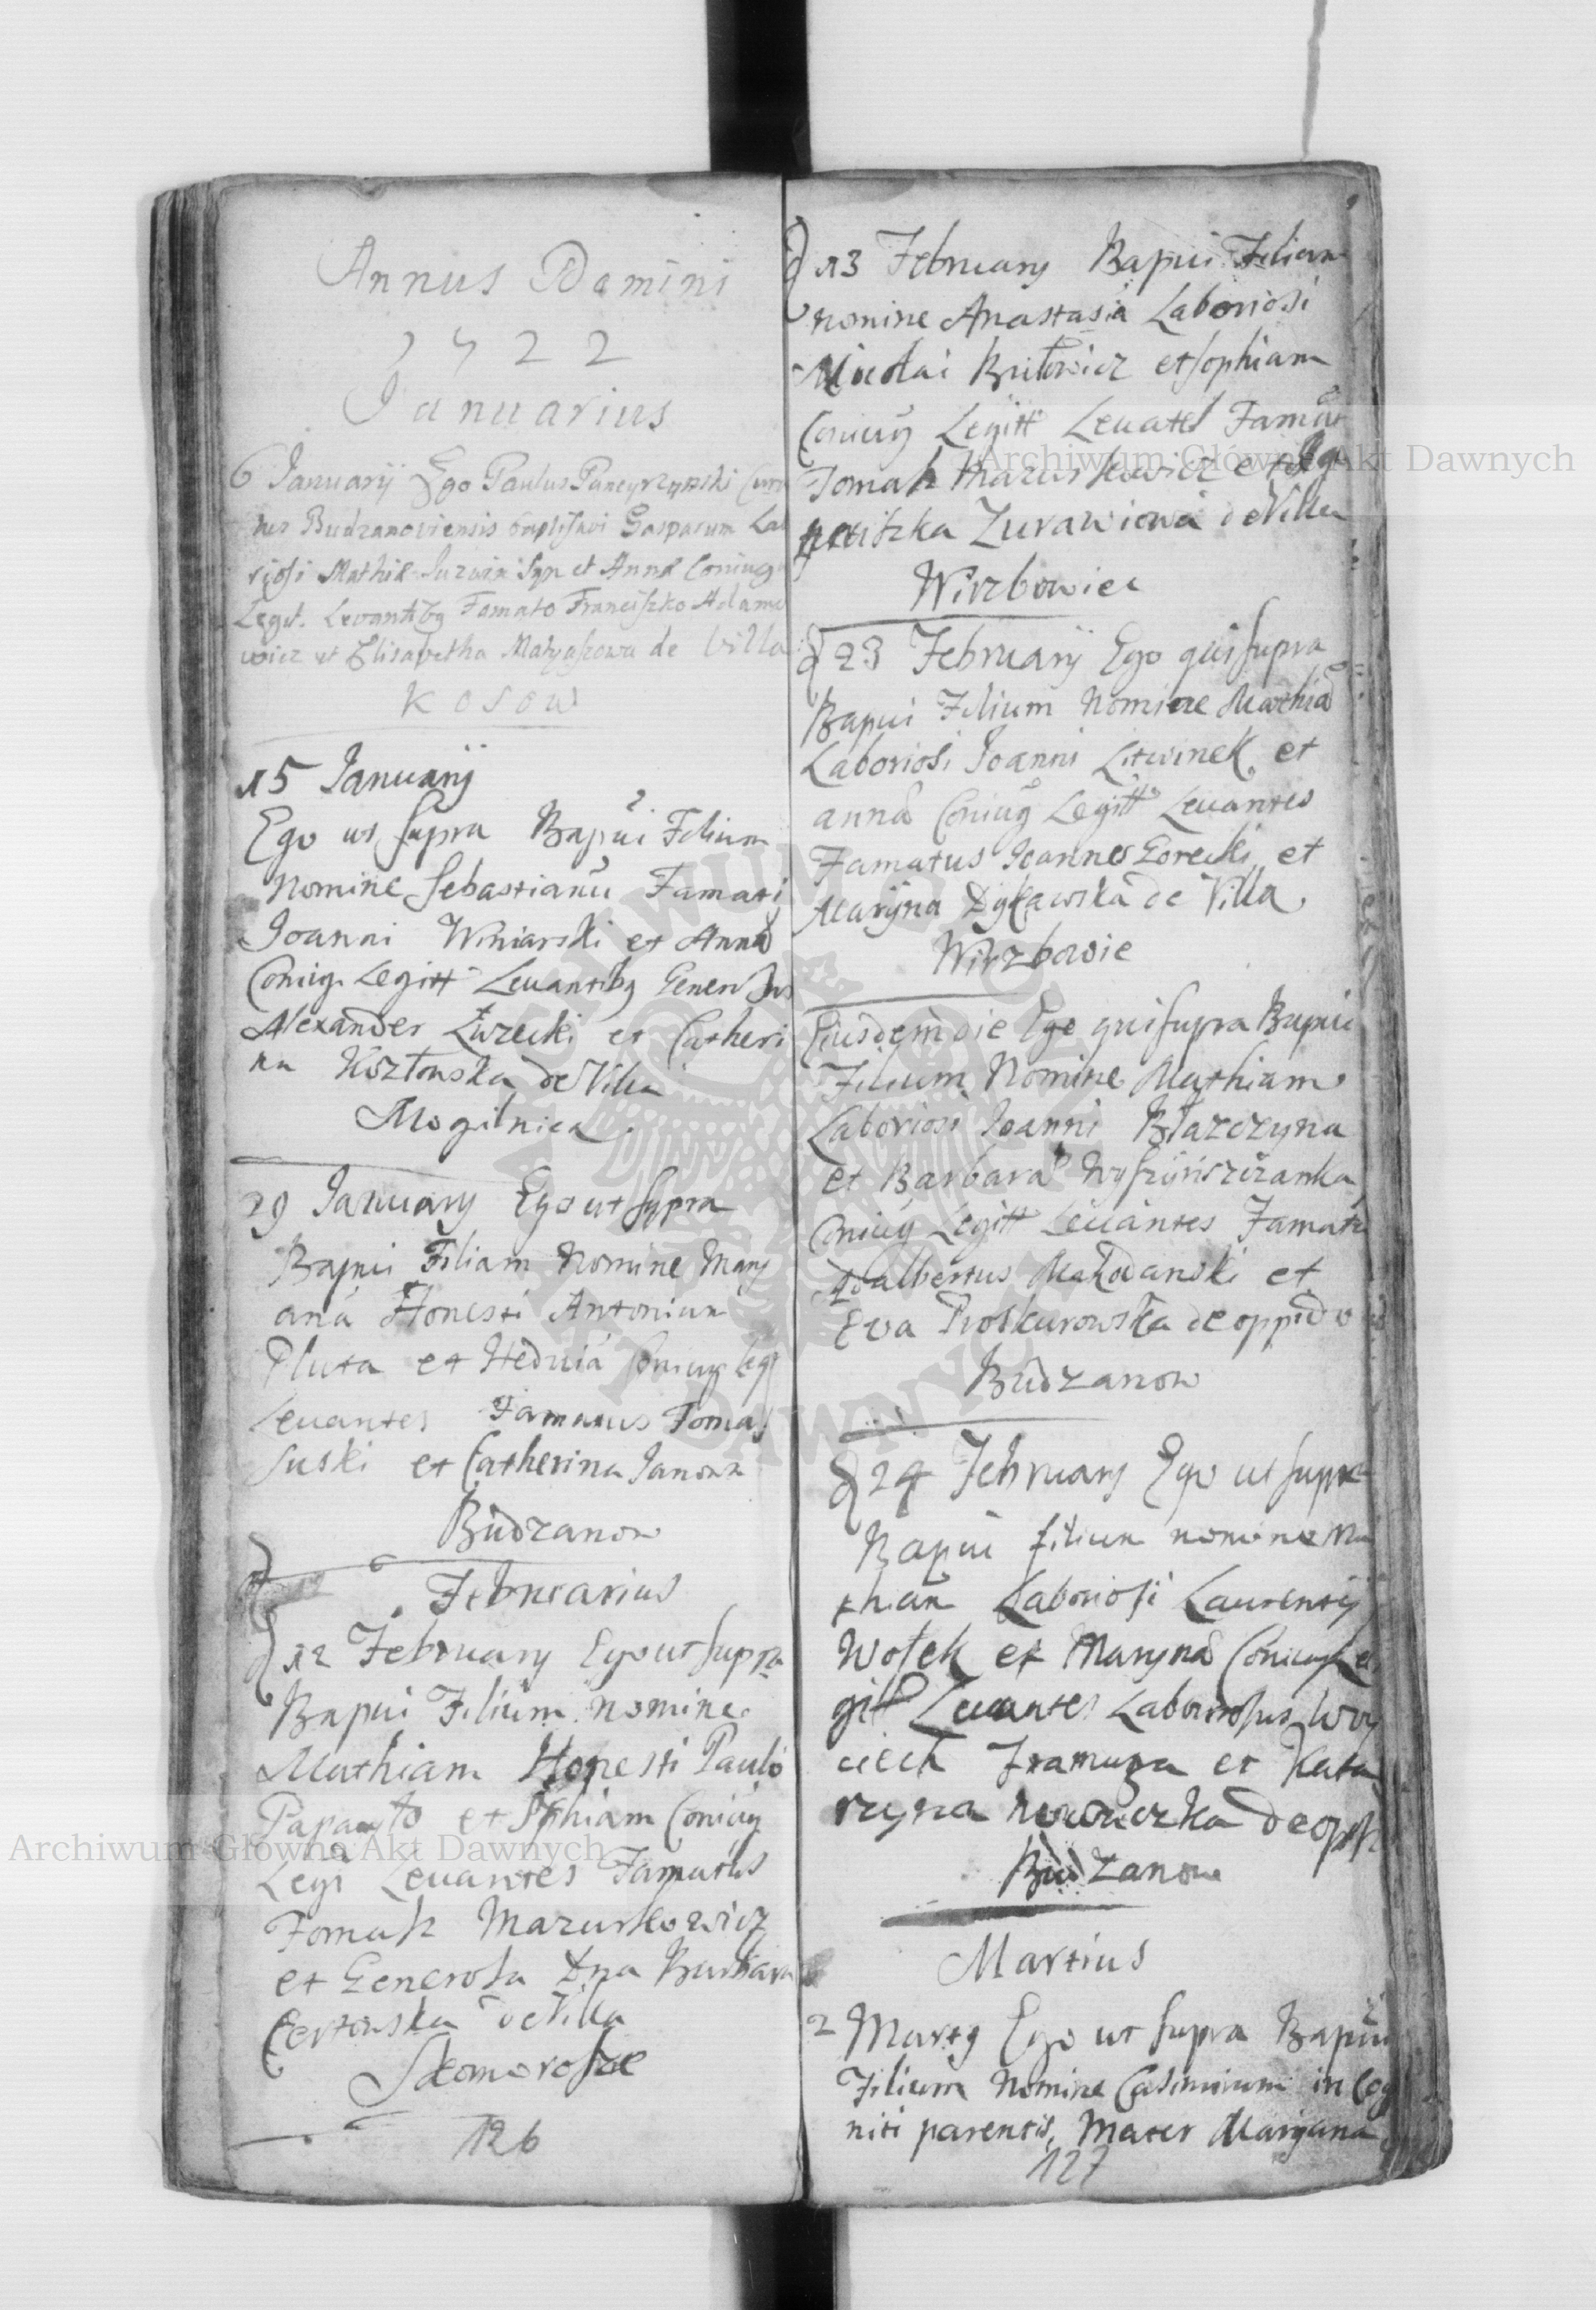 Annus Domini
1722
Januarius
6 Januarij Ego Paulus Pancyrzynski
Budzanoviensis baptisavi Gasparum Lab
riosi Mathiæ et Anna Coniug
Legit. Levantibq Famato Franciszko Adamo
wicz et Elisabetha Matyaszowa de Villa
Kosow
15 Januarij
Ego ut supra Bapũi Filium
Nomine Sebastianũ Famati
Joanni Winiarski et Anna
Coniug. Legitt Levantibq
Alexander et Catheri
na de Villa
Mogilnica.
29 January Ego ut supra
Bapui Filiam Nomine Mary
aná Honesti Antonium
Pluta et Hedviá Coniug leg
Levantes Famatus Tomas
Suski et Catherina Janowa
Budzanow
Februarius
12 February Ego ut supra
Bapui Filium nomine
Mathiam Honesti Pauli
et Sophiam Coniug
Legi Levantes Famatus
Tomasz Mazurkowicz
et Generosa Dna Barbara
de Villa
Skomorosze
126
13 February Bapui Filiam
nomine Anastasia Laboriosi
Nicolai et Sophiam
Coniug Legitt Levates Famat
Tomasz Mazurkowicz et
Zurawiowa de Villa
Wirzbowiec
23 Februarij Ego qui supra
Bapui Filium Nomine Mathia
Laboriosi Joanni Litwinek et
anna Coniug Legitt Levantes
Famatus Joannes Gorecki et
Maryna de Villa
Wirzbowie
Eiusdem die Ego qui supra Bapui
Filium Nomine Mathiam
Laboriosi Joanni Błazczyna
et Barbara
Coniug Legitt Levantes Famatu
Adalbertus et
Eva Proskurowska de oppido
Budzanow
24 February Ego ut supra
Bapui filium nomine Ma
thian Laboriosi Laurentij
Wołek et Maryna Coniug Le
gitt Levantes Laboriosus Woy
ciech et Kata
rzyna de opp
Budzanow
Martius
2 Marty Ego ut supra Bapui
Filium Nomine Casimirum in Cog
niti parentis, Mater Maryana
127
Archiwum Główne Akt Dawnych
Archiwum Główne Akt Dawnych